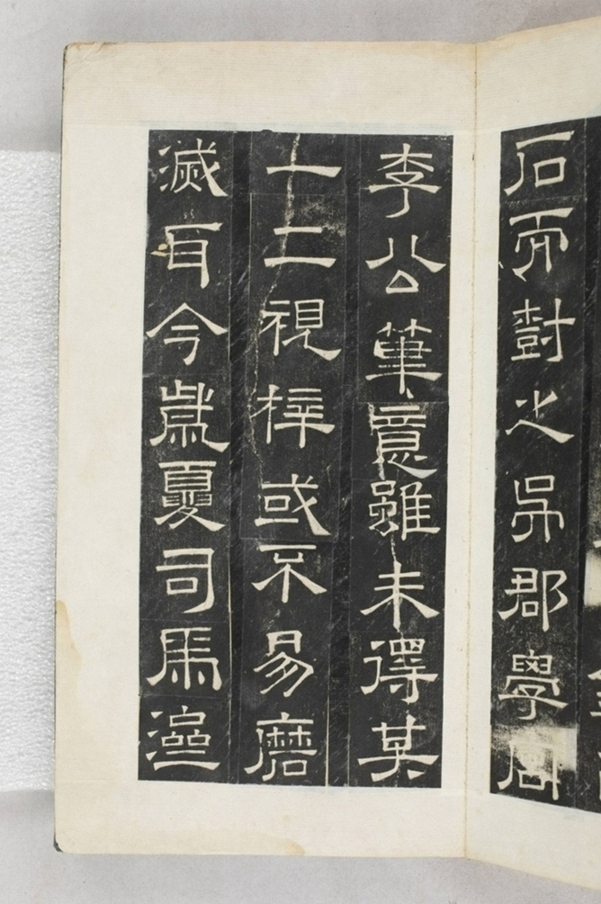 石而樹之吳郡學
李公筆意雖未得其
一二視梓或不易磨
滅耳今歲夏司馬溫